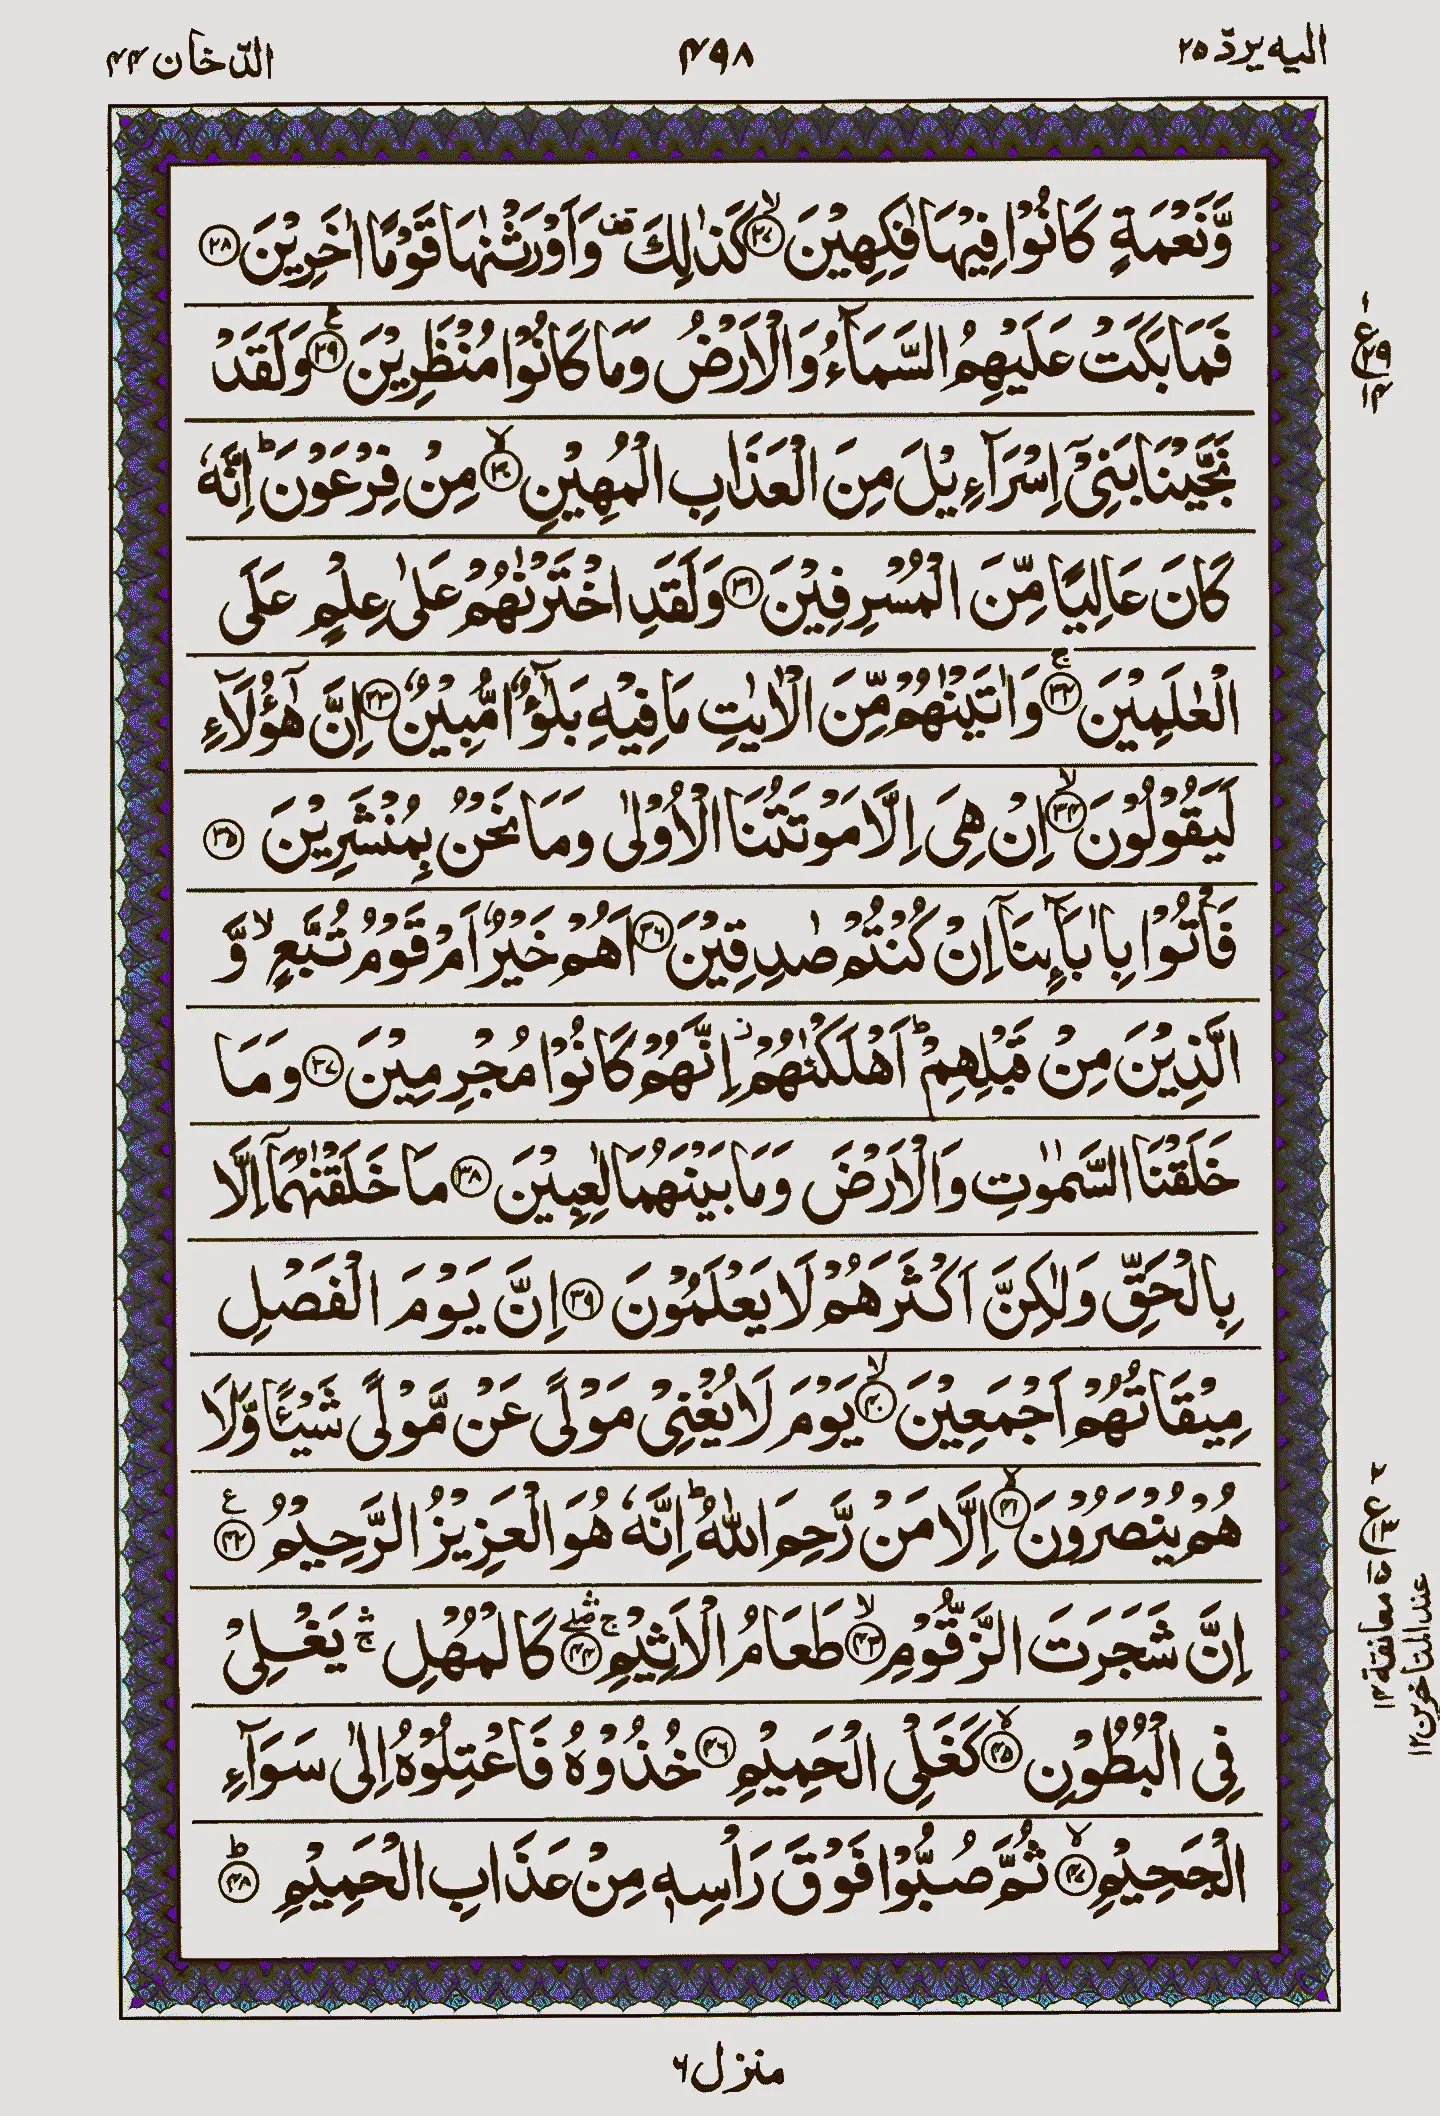 الیہ یردّ ۲۵
۴۹۸
الدّخان ۴۴
وَّنَعْمَةٍ كَانُوْا فِيْهَا فٰكِهِيْنَ ۙ﴿۲۷﴾ كَذٰلِكَ ۫ وَاَوْرَثْنٰهَا قَوْمًا اٰخَرِيْنَ ﴿۲۸﴾
فَمَا بَكَتْ عَلَيْهِمُ السَّمَآءُ وَالْاَرْضُ وَمَا كَانُوْا مُنْظَرِيْنَ ﴿۲۹﴾ وَلَقَدْ
نَجَّيْنَا بَنِيْٓ اِسْرَآءِيْلَ مِنَ الْعَذَابِ الْمُهِيْنِ ۙ﴿۳۰﴾ مِنْ فِرْعَوْنَ ؕ اِنَّهٗ
كَانَ عَالِيًا مِّنَ الْمُسْرِفِيْنَ ﴿۳۱﴾ وَلَقَدِ اخْتَرْنٰهُمْ عَلٰى عِلْمٍ عَلَى
الْعٰلَمِيْنَ ۚ﴿۳۲﴾ وَاٰتَيْنٰهُمْ مِّنَ الْاٰيٰتِ مَا فِيْهِ بَلٰٓؤٌا مُّبِيْنٌ ﴿۳۳﴾ اِنَّ هٰٓؤُلَآءِ
لَيَقُوْلُوْنَ ۙ﴿۳۴﴾ اِنْ هِيَ اِلَّا مَوْتَتُنَا الْاُوْلٰى وَمَا نَحْنُ بِمُنْشَرِيْنَ ﴿۳۵﴾
فَاْتُوْا بِاٰبَآئِنَآ اِنْ كُنْتُمْ صٰدِقِيْنَ ﴿۳۶﴾ اَهُمْ خَيْرٌ اَمْ قَوْمُ تُبَّعٍ ۙ وَّ
الَّذِيْنَ مِنْ قَبْلِهِمْ ؕ اَهْلَكْنٰهُمْ ؗ اِنَّهُمْ كَانُوْا مُجْرِمِيْنَ ﴿۳۷﴾ وَمَا
خَلَقْنَا السَّمٰوٰتِ وَالْاَرْضَ وَمَا بَيْنَهُمَا لٰعِبِيْنَ ﴿۳۸﴾ مَا خَلَقْنٰهُمَآ اِلَّا
بِالْحَقِّ وَلٰكِنَّ اَكْثَرَهُمْ لَا يَعْلَمُوْنَ ﴿۳۹﴾ اِنَّ يَوْمَ الْفَصْلِ
مِيْقَاتُهُمْ اَجْمَعِيْنَ ۙ﴿۴۰﴾ يَوْمَ لَا يُغْنِيْ مَوْلًى عَنْ مَّوْلًى شَيْئًا وَّلَا
هُمْ يُنْصَرُوْنَ ۙ﴿۴۱﴾ اِلَّا مَنْ رَّحِمَ اللّٰهُ ؕ اِنَّهٗ هُوَ الْعَزِيْزُ الرَّحِيْمُ ﴿۴۲﴾
اِنَّ شَجَرَتَ الزَّقُّوْمِ ۙ﴿۴۳﴾ طَعَامُ الْاَثِيْمِ ۚۖ﴿۴۴﴾ كَالْمُهْلِ ۛۚ يَغْلِيْ
فِي الْبُطُوْنِ ۙ﴿۴۵﴾ كَغَلْيِ الْحَمِيْمِ ﴿۴۶﴾ خُذُوْهُ فَاعْتِلُوْهُ اِلٰى سَوَآءِ
الْجَحِيْمِ ۙ﴿۴۷﴾ ثُمَّ صُبُّوْا فَوْقَ رَاْسِهٖ مِنْ عَذَابِ الْحَمِيْمِ ؕ﴿۴۸﴾
۱
ع ۲۹
۱۴
۲
ع
معانقة ۱۳
عند المتاخرین ۱۲
منزل ۶